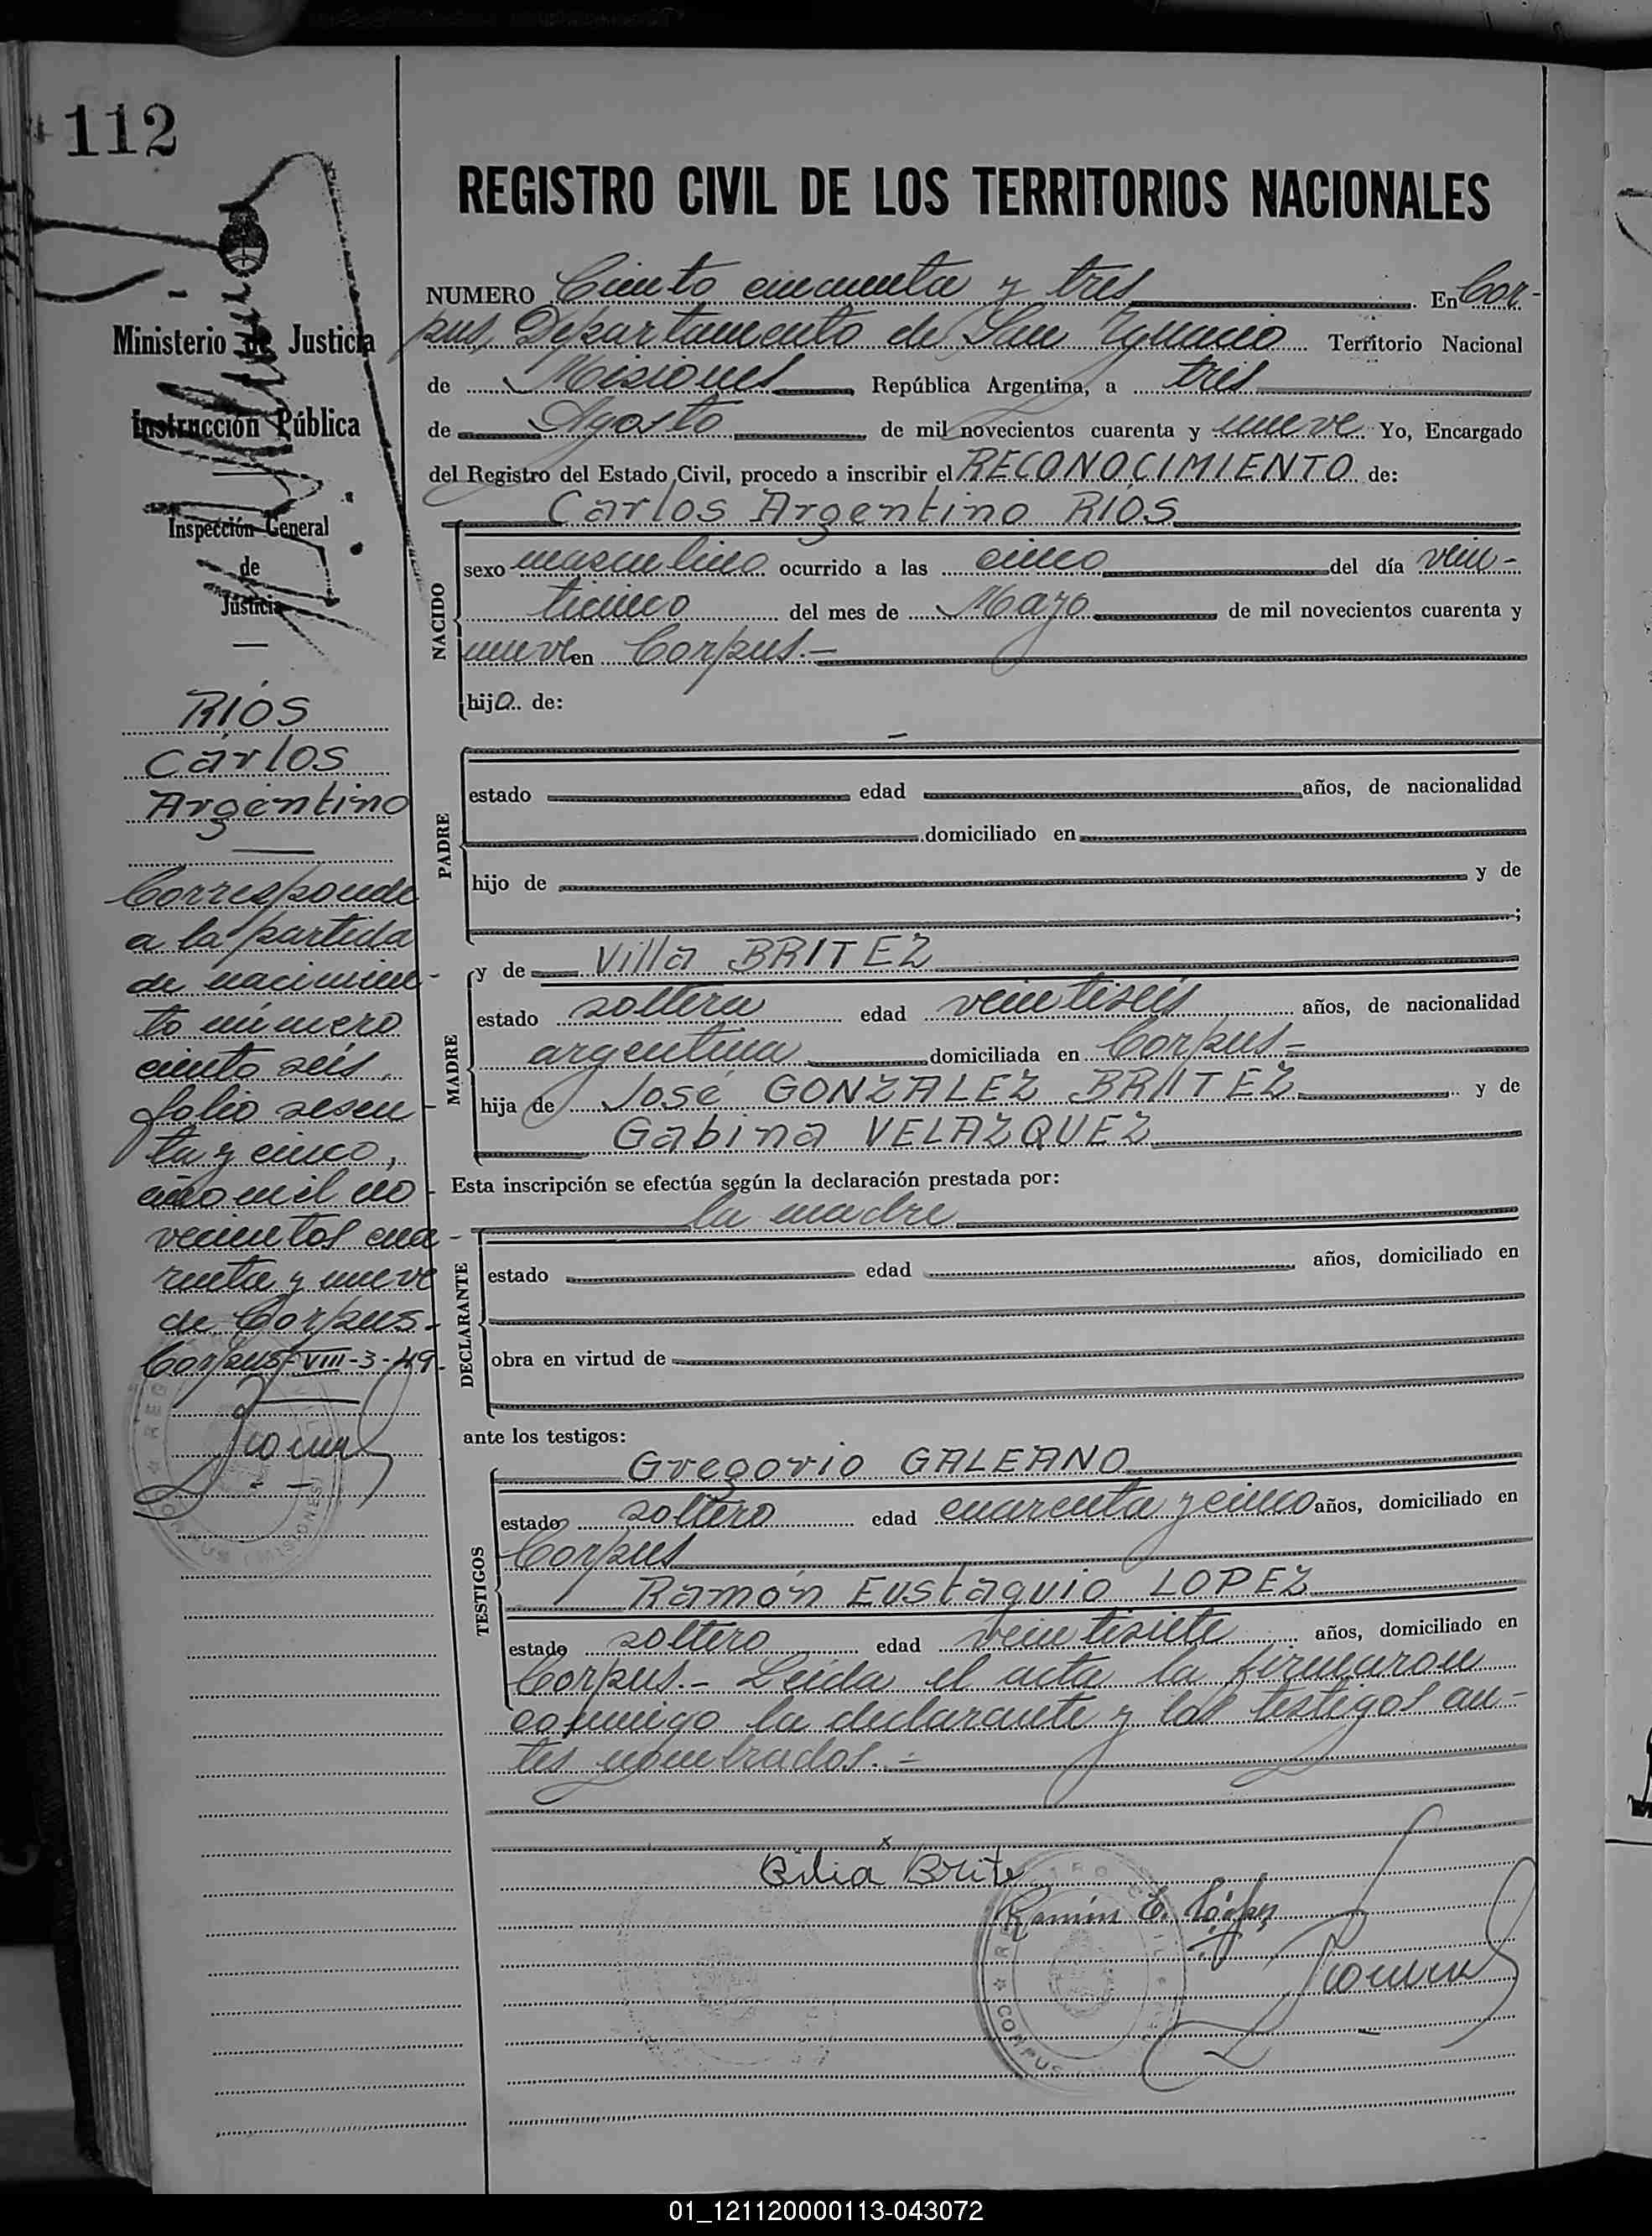 112
REGISTRO CIVIL DE LOS TERRITORIOS NACIONALES
NUMERO Ciento cincuenta y tres. En Cor-
pus, Departamento de San Ygnacio Territorio Nacional
de Misiones República Argentina, a tres
de Agosto de mil novecientos cuarenta y nueve Yo, Encargado
del Registro del Estado Civil, procedo a inscribir el RECONOCIMIENTO de:
Carlos Argentino RIOS
NACIDO
sexo masculino ocurrido a las cinco del día vein-
ticinco del mes de Mayo de mil novecientos cuarenta y
nueve en Corpus.-
hijo de:
PADRE
estado edad años, de nacionalidad
domiciliado en
hijo de y de
;
MADRE
y de Villa BRITEZ
estado soltera edad veintiseis años, de nacionalidad
argentina domiciliada en Corpus.-
hija de José GONZALEZ BRITEZ y de
Gabina VELAZQUEZ
Esta inscripción se efectúa según la declaración prestada por:
la madre
DECLARANTE
estado edad años, domiciliado en
obra en virtud de
ante los testigos:
TESTIGOS
Gregorio GALEANO
estado soltero edad cuarenta y cinco años, domiciliado en
Corpus
Ramón Eustaquio LOPEZ
estado soltero edad veintisiete años, domiciliado en
Corpus.- Leída el acta la firmaron
conmigo la declarante y los testigos an-
tes nombrados.-
x
Brite
Ramón E. López
REGISTRO CIVIL
CORPUS
Ministerio de Justicia
Instrucción Pública
Inspección General
de
Justicia
RIOS
Carlos
Argentino
Corresponde
a la partida
de nacimien-
to número
ciento seis,
folio sesen-
ta y cinco,
año mil no-
vecientos cua-
renta y nueve
de Corpus.-
Corpus, VIII-3-49.
01_121120000113-043072